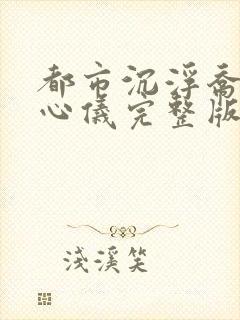 都市沉浮喬
心儀完整版
淺溪笑